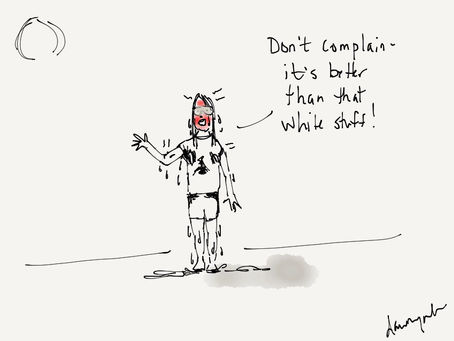 Don't complain-
it's better
than that
white stuff!